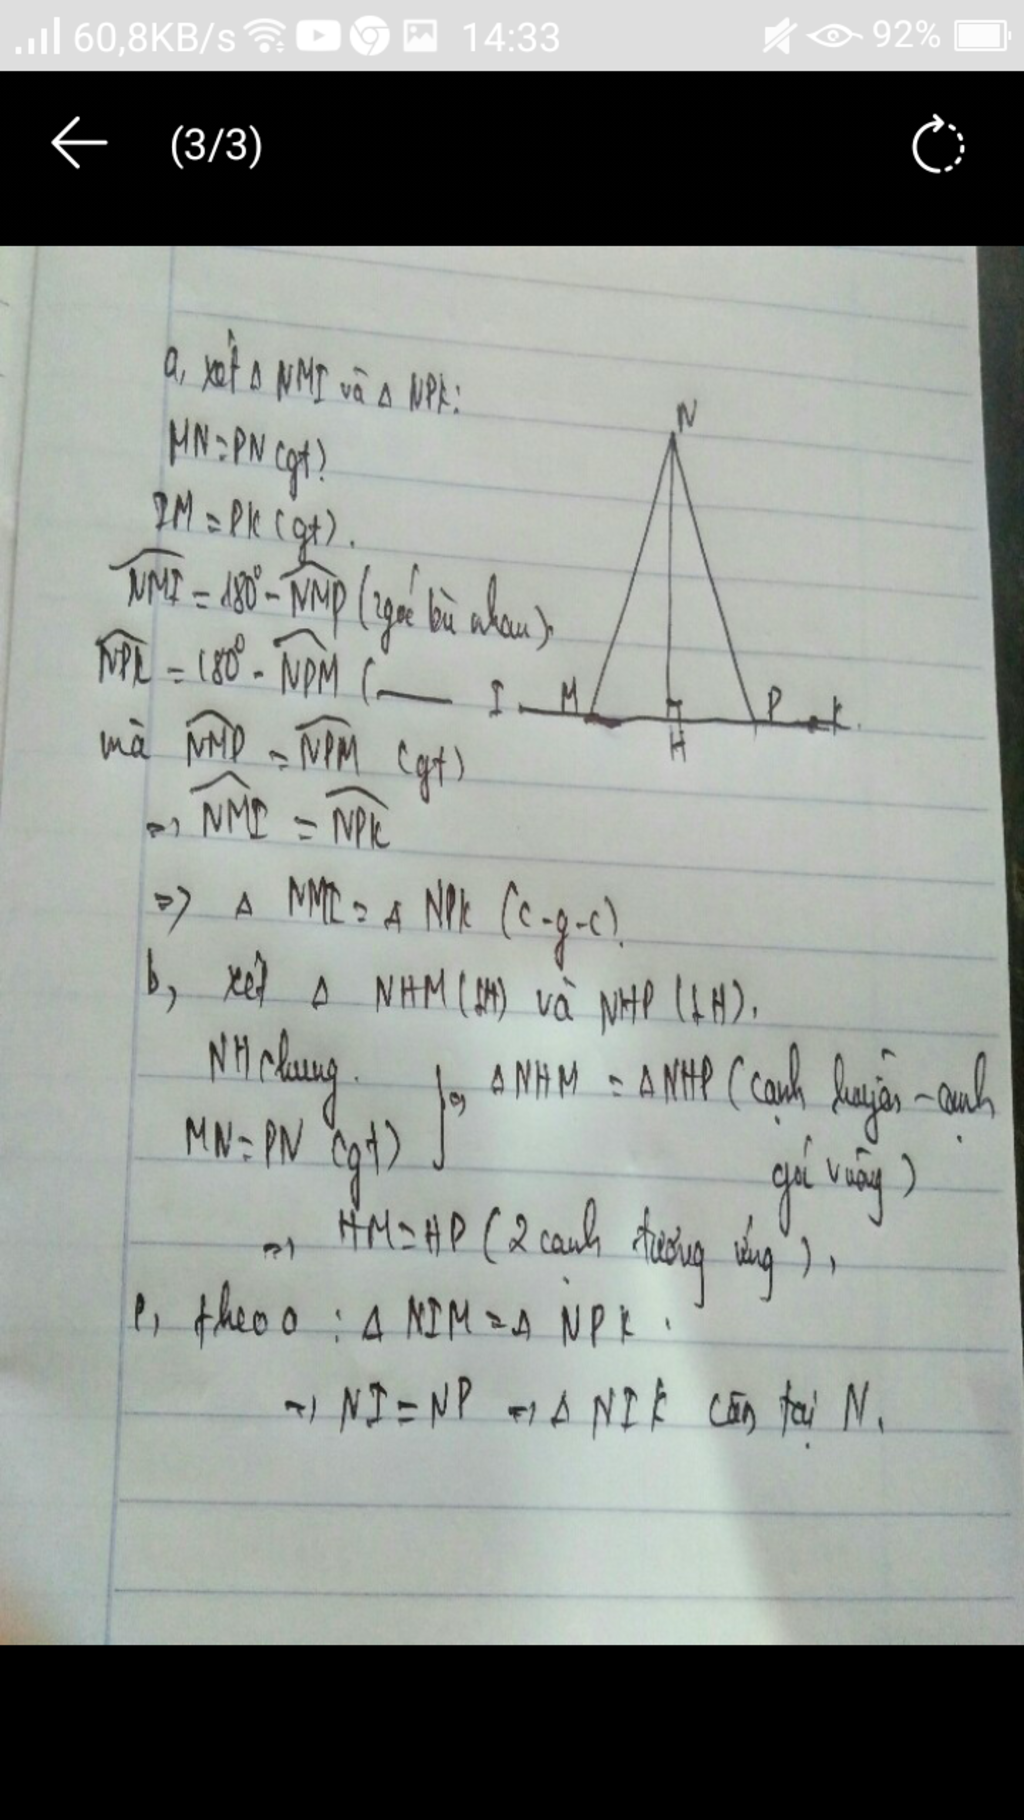 60,8KB/s 14:33 92%
(3/3)
a, xét Δ NMI và Δ NPK:
MN=PN (gt)
IM = PK (gt).
NMI = 180° - NMP (2góc bù nhau).
NPK = 180° - NPM (
mà NMP = NPM (gt)
=> NMI = NPK
=> Δ NMI = Δ NPK (c-g-c).
N
I M H P K
b, xét Δ NHM (⊥H) và NHP (⊥H).
NH chung.
MN=PN (gt)
} => Δ NHM = Δ NHP (cạnh huyền - cạnh
góc vuông)
=> HM=HP (2 cạnh tương ứng),
c, theo a : Δ NIM = Δ NPK.
=> NI = NP => Δ NIK cân tại N.